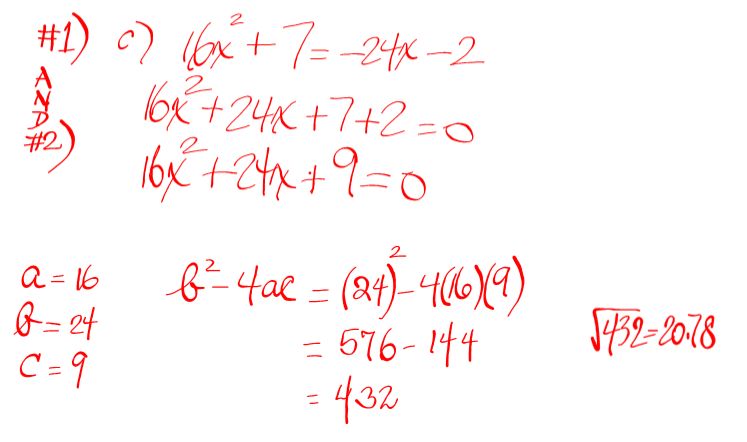 #1) c) 16x² + 7 = -24x - 2
AND
#2)
16x² + 24x + 7 + 2 = 0
16x² + 24x + 9 = 0
a = 16
b = 24
c = 9
b² - 4ac = (24)² - 4(16)(9)
= 576 - 144
= 432
√432 = 20.78